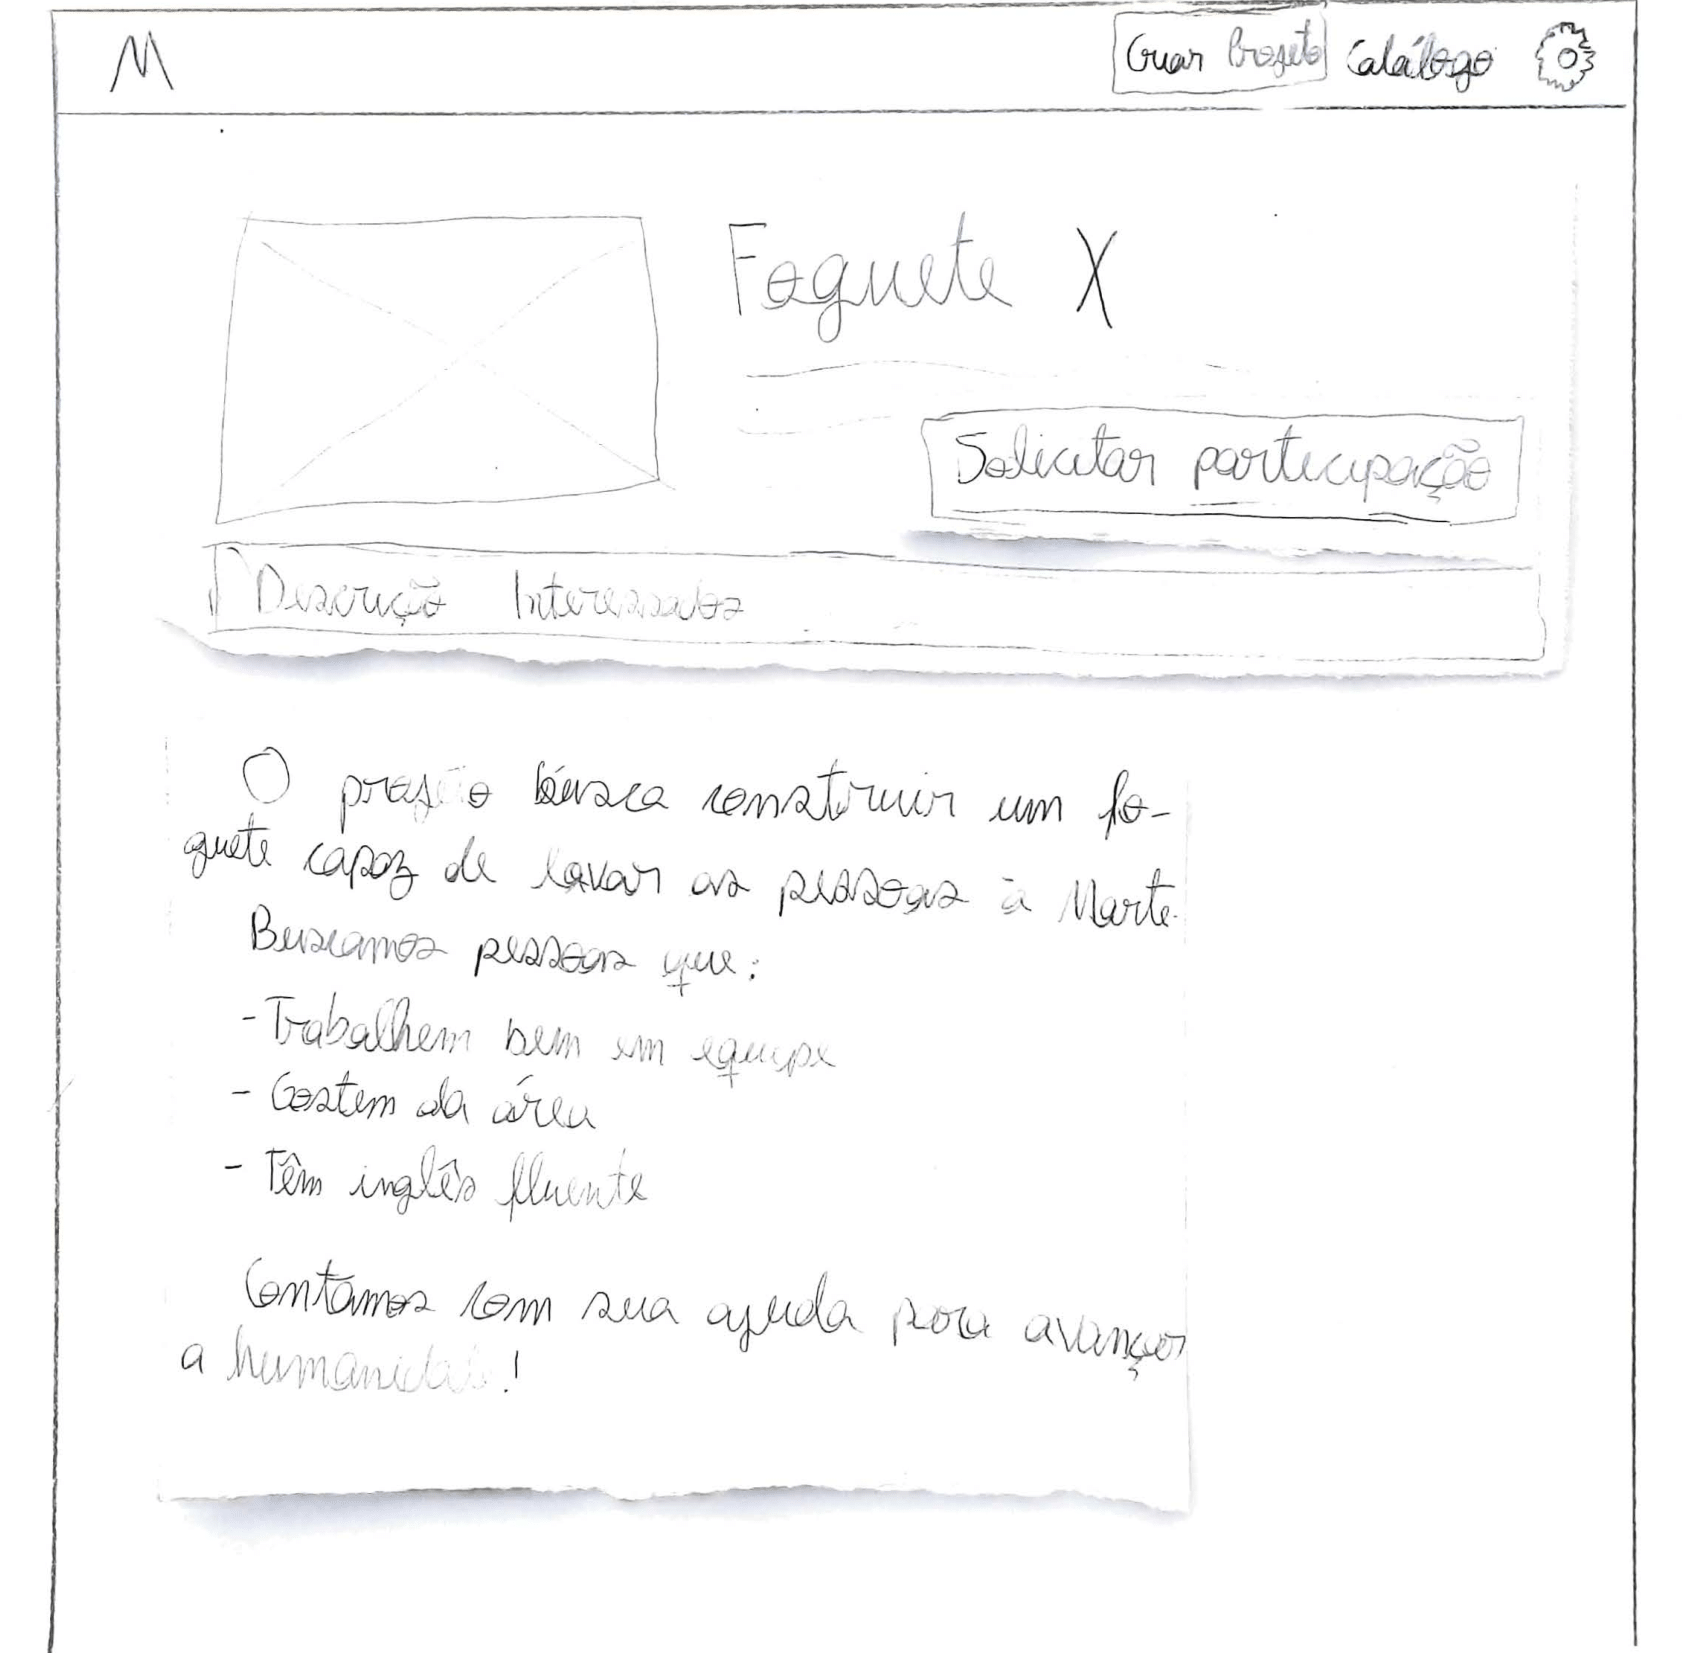 M
Criar Projeto Catálogo
Foguete X
Solicitar participação
Descrição Interessados
O projeto busca construir um fo-
guete capaz de lavar as pessoas à Marte.
Buscamos pessoas que:
- Trabalhem bem em equipe
- Gostem da área
- Têm inglês fluente
Contamos com sua ajuda para avançar
a humanidade!